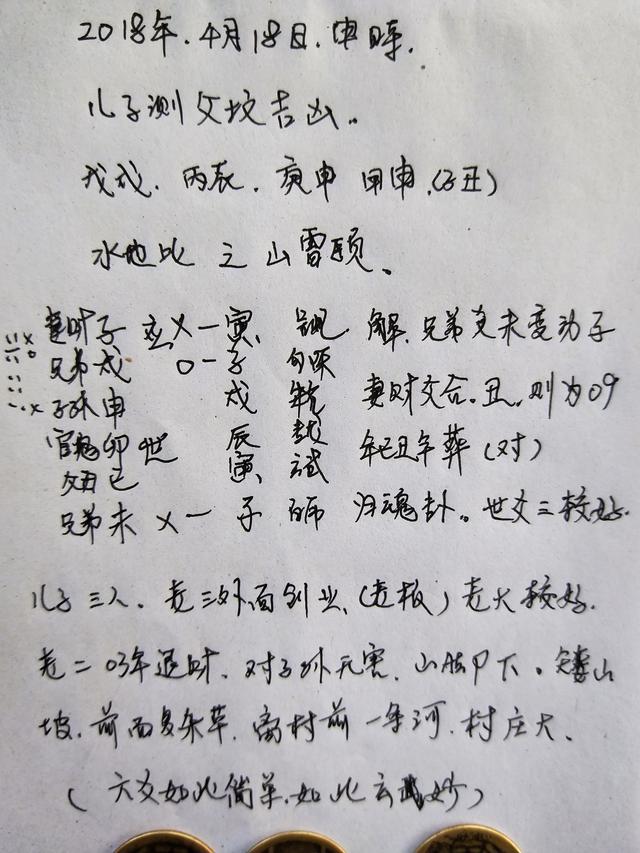 2018年.4月18日.申时.
儿子测父坟吉凶.
戊戌.丙辰.庚申 甲申.(子丑)
水地比 之 山雷颐、
妻财子 应 X一寅、 解.兄弟爻未变为子
兄弟戌 O一子 勾陈
子孙申 戌 妻财爻合.丑.,则为09
官鬼卯世 辰 年己丑年葬(对)
父母巳 寅、
兄弟未 X一 子 归魂卦。世爻三较好.
儿子三人、老三外面创业、(老板)老大较好.
老二03年退财、对子孙无害、山脚下。矮山
坡、前面多杂草、离村前一条河、村庄大、
(六爻如此简单.如此玄妙)